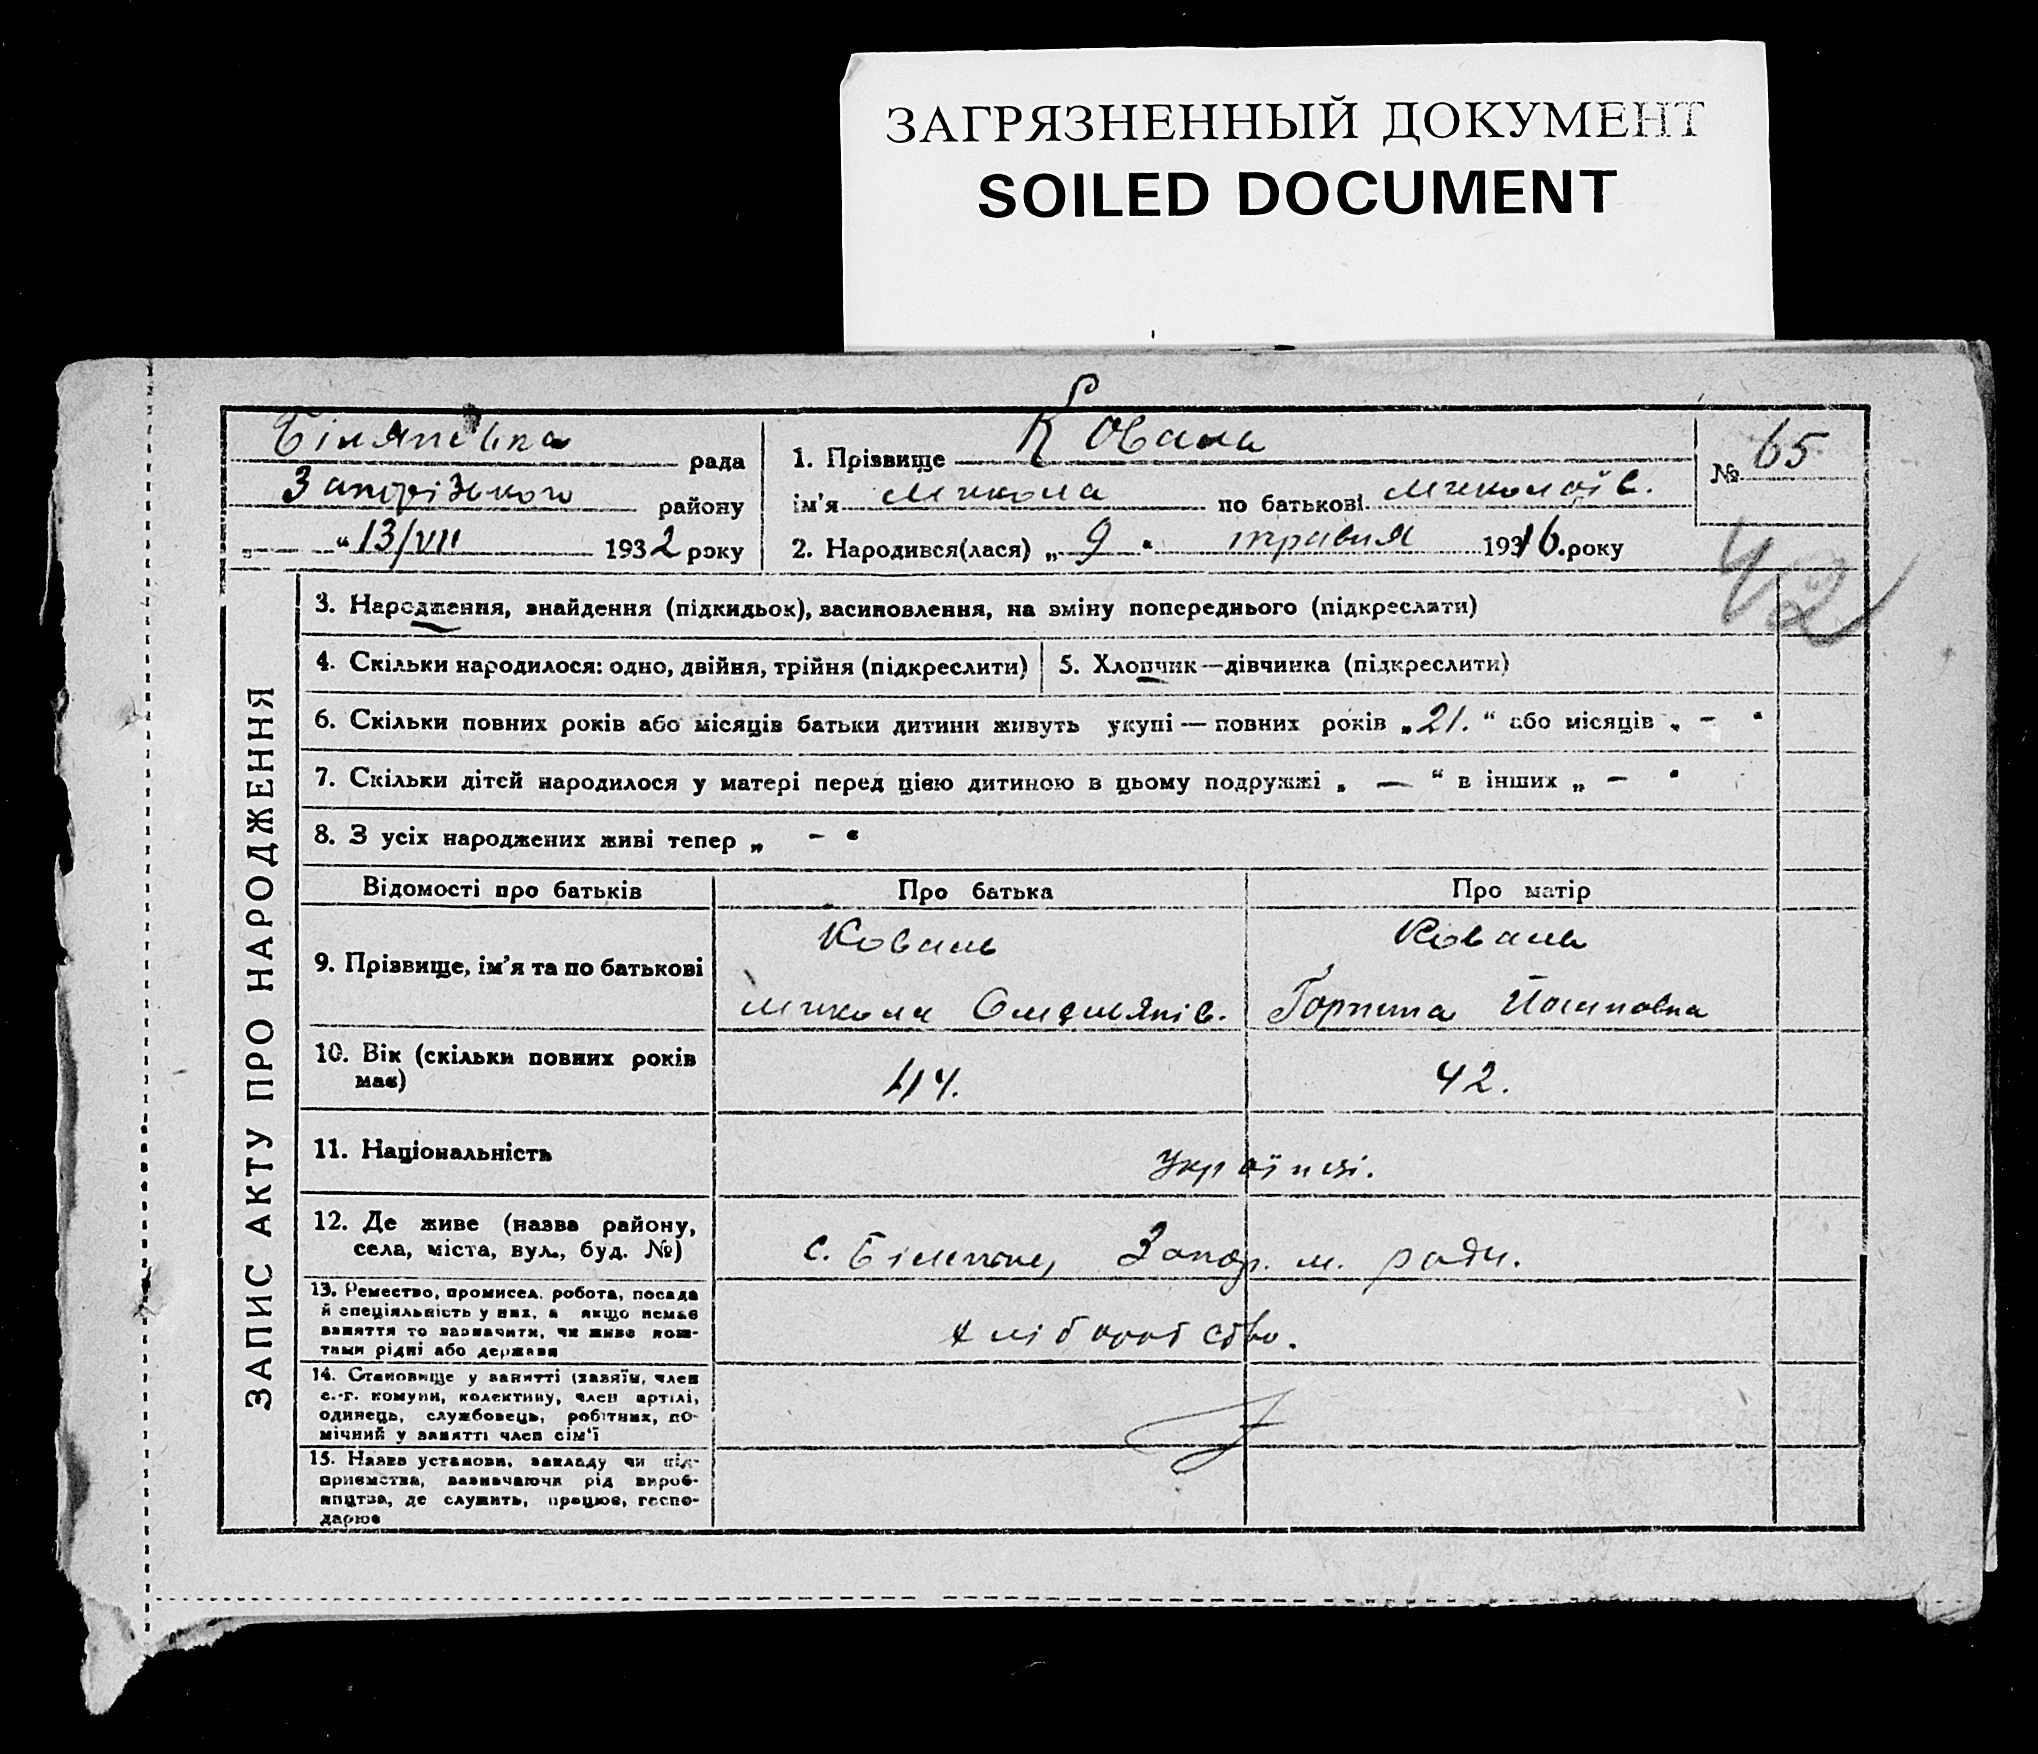 ЗАГРЯЗНЕННЫЙ ДОКУМЕНТ
SOILED DOCUMENT
Біленська рада
Запорізького району
„ “ 13/VII 1932 року
1. Прізвище Коваль
ім’я Микола по батькові Миколаїв.
2. Народився(лася) „ 9 “ травня 1916. року
№ 65
42
ЗАПИС АКТУ ПРО НАРОДЖЕННЯ
3. Народження, знайдення (підкидьок), засиновлення, на зміну попереднього (підкреслити)
4. Скільки народилося: одно, двійня, трійня (підкреслити)
5. Хлопчик—дівчинка (підкреслити)
6. Скільки повних років або місяців батьки дитини живуть укупі — повних років „ 21. “ або місяців „ - “
7. Скільки дітей народилося у матері перед цією дитиною в цьому подружжі „ — “ в інших „ - “
8. З усіх народжених живі тепер „ - “
Відомості про батьків Про батька Про матір
9. Прізвище, ім’я та по батькові
Коваль
Микола Омелянів.
Коваль
Горпина Йосиповна
10. Вік (скільки повних років
має)
44.
42.
11. Національність
Українці.
12. Де живе (назва району,
села, міста, вул., буд. №)
с. Біленьке, Запор. м. ради.
13. Ремество, промисел, робота, посада
й спеціяльність у них, а якщо немає
заняття то зазначити, чи живе кош-
тами рідні або держави
хліборобство.
14. Становище у занятті (хазяїн, член
с.-г. комуни, колективу, член артілі,
одинець, службовець, робітник, по-
мічний у занятті член сім'ї
15. Назва установи, закладу чи під-
приємства, зазначаючи рід вироб-
ництва, де служить, працює, госпо-
дарює